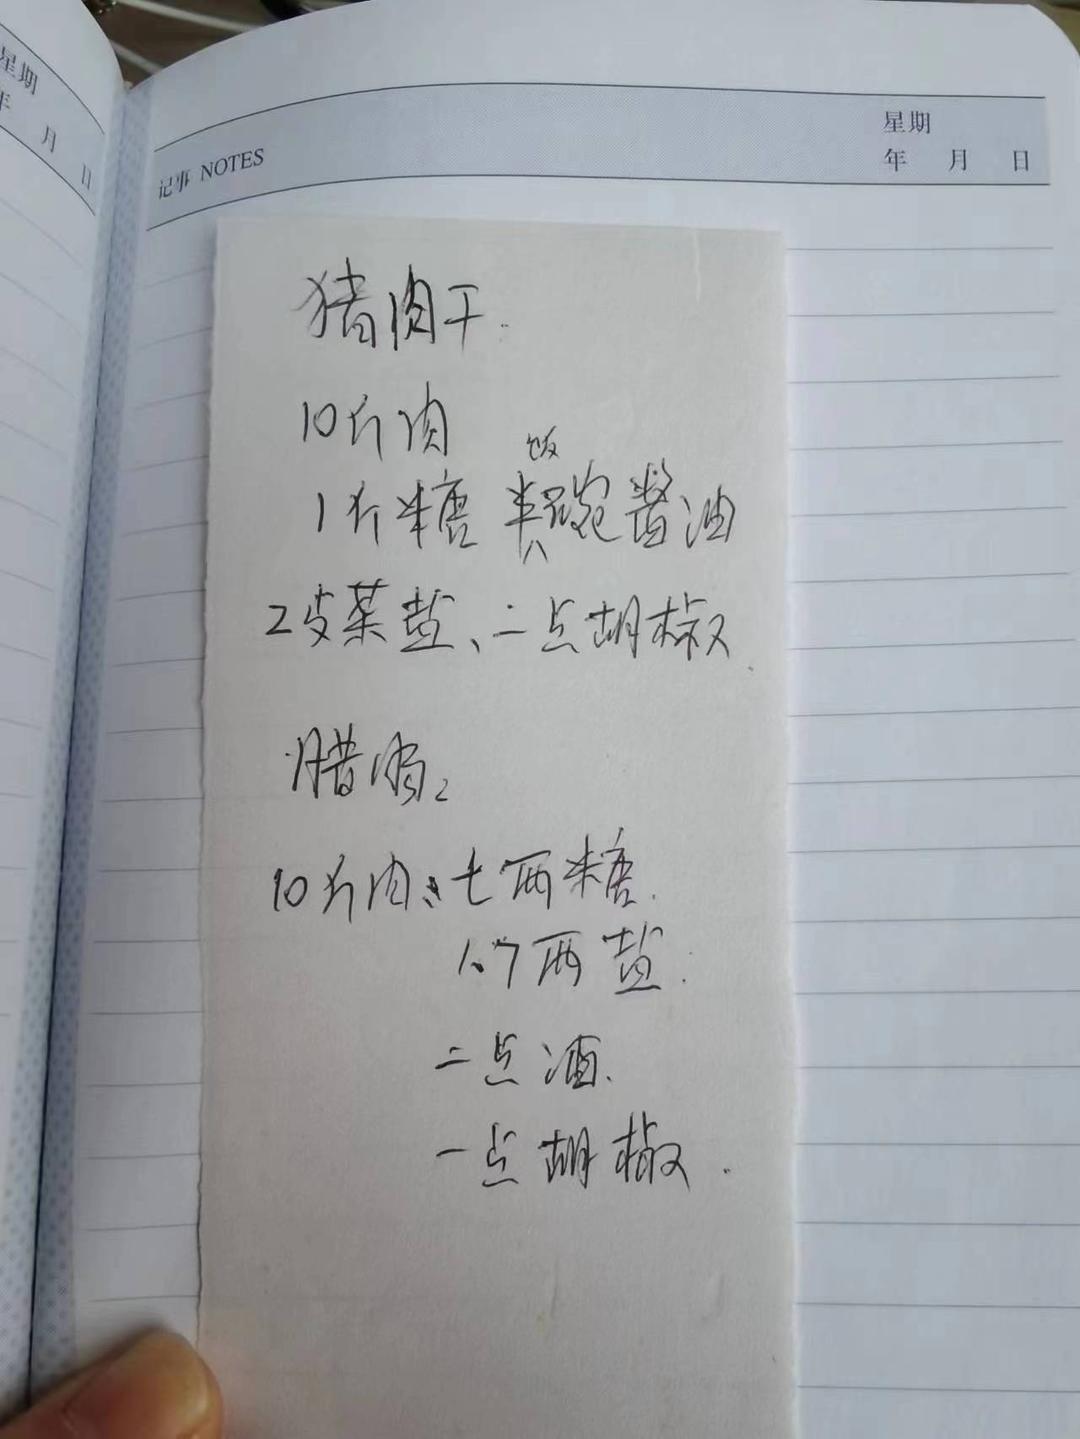 星期
年 月 日
记事 NOTES
星期
年 月 日
猪肉干.
10斤肉
饭
1斤糖 半碗酱油
2支菜盐、二点胡椒.
腊肠
10斤肉、七两糖.
1.7两盐.
二点酒.
一点胡椒.